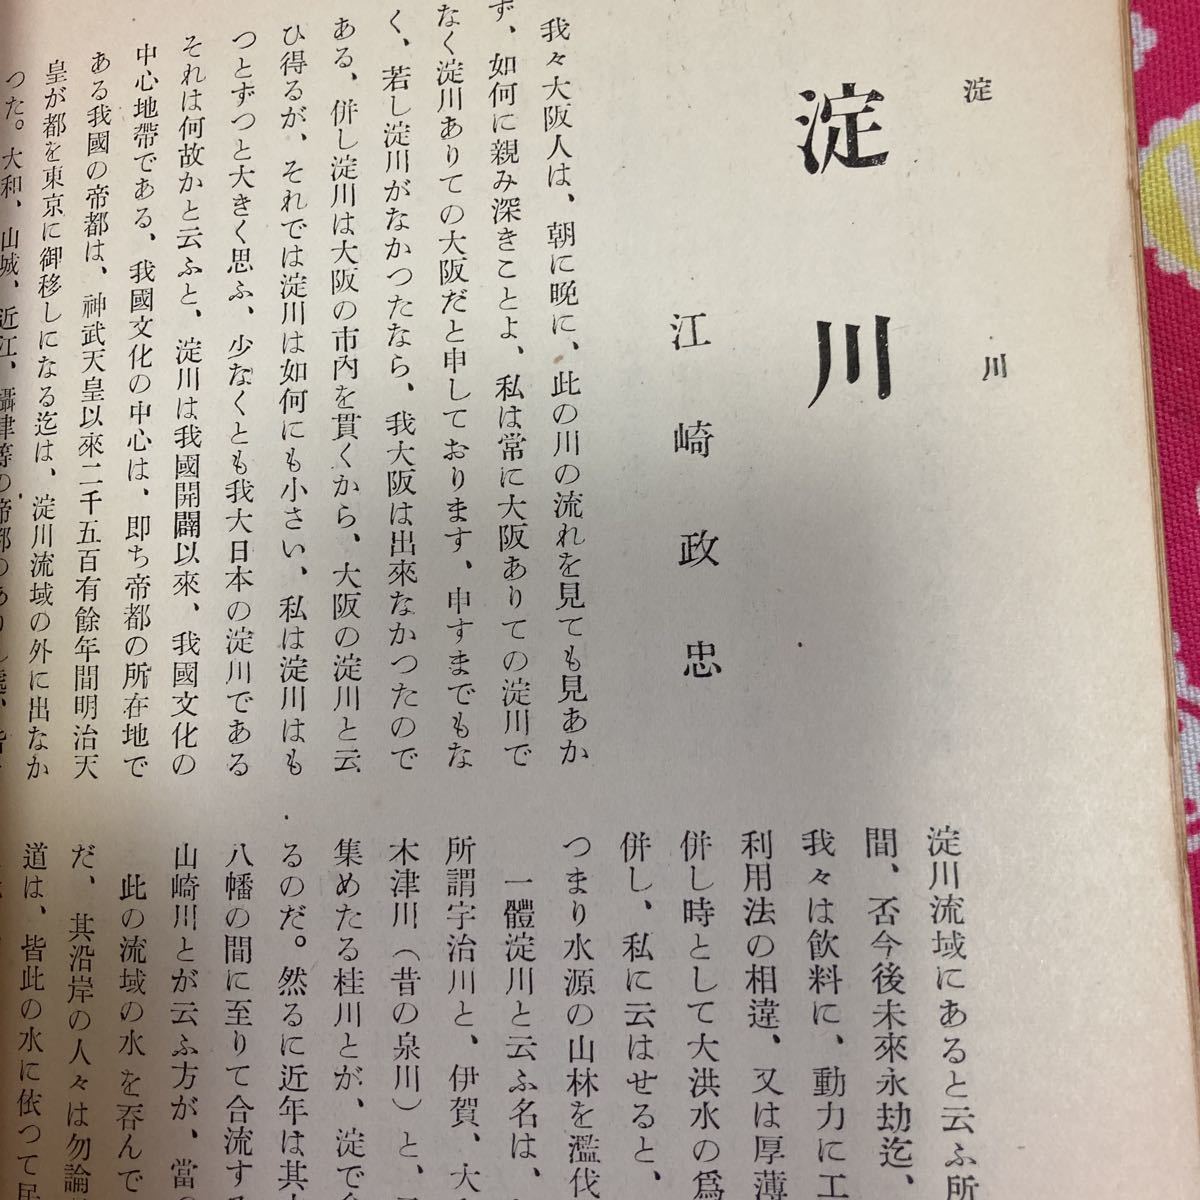 淀
川
淀川
江崎政忠
我々大阪人は、朝に晩に、此の川の流れを見ても見あか
ず、如何に親み深きことよ、私は常に大阪ありての淀川で
なく淀川ありての大阪だと申しております、申すまでもな
く、若し淀川がなかつたなら、我大阪は出來なかつたので
ある、併し淀川は大阪の市內を貫くから、大阪の淀川と云
ひ得るが、それでは淀川は如何にも小さい、私は淀川はも
つとずつと大きく思ふ、少なくとも我大日本の淀川である
それは何故かと云ふと、淀川は我國開闢以來、我國文化の
中心地帶である、我國文化の中心は、卽ち帝都の所在地で
ある我國の帝都は、神武天皇以來二千五百有餘年間明治天
皇が都を東京に御移しになる迄は、淀川流域の外に出なか
つた。大和、山城、近江、攝津等の帝都のありし處、皆
淀川流域にあると云ふ所
間、否今後未來永劫迄、
我々は飮料に、動力に工
利用法の相違、又は厚薄
併し時として大洪水の爲
併し、私に云はせると、
つまり水源の山林を濫伐
一體淀川と云ふ名は、
所謂宇治川と、伊賀、大
木津川（昔の泉川）と、
集めたる桂川とが、淀で合
るのだ。然るに近年は其
八幡の間に至りて合流する
山崎川とが云ふ方が、當
此の流域の水を吞んで
だ、其沿岸の人々は勿論
道は、皆此の水に依つて